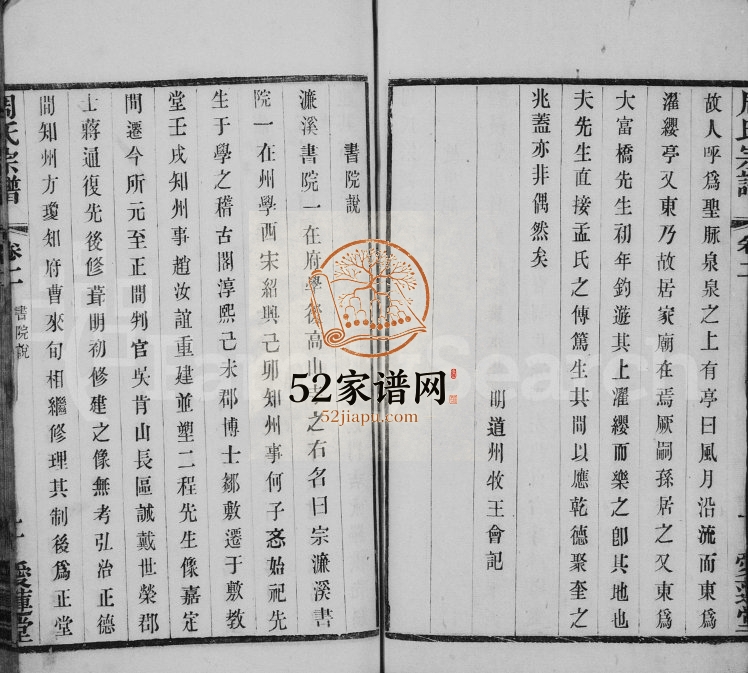 故人呼爲聖脈泉泉之上有亭曰風月沿流而東爲
濯纓亭又東乃故居家廟在焉厥嗣孫居之又東爲
大富橋先生初年釣遊其上濯纓而樂之卽其地也
夫先生直接孟氏之傳篤生其間以應乾德聚奎之
兆蓋亦非偶然矣
明道州牧王會記
書院說
濂溪書院一在府學後高山之右名曰宗濂溪書
院一在州學西宋紹興己卯知州事何子忞始祀先
生于學之稽古閣淳熙己未郡博士鄒敷遷于敷教
堂壬戌知州事趙汝誼重建並塑二程先生像嘉定
間遷今所元至正間判官吳肯山長區誠戴世榮郡
士蔣通復先後修葺明初修建之像無考弘治正德
間知州方瓊知府曹來旬相繼修理其制後爲正堂
周氏宗譜
卷二
書院說
愛蓮堂
52家谱网
52jiapu.com